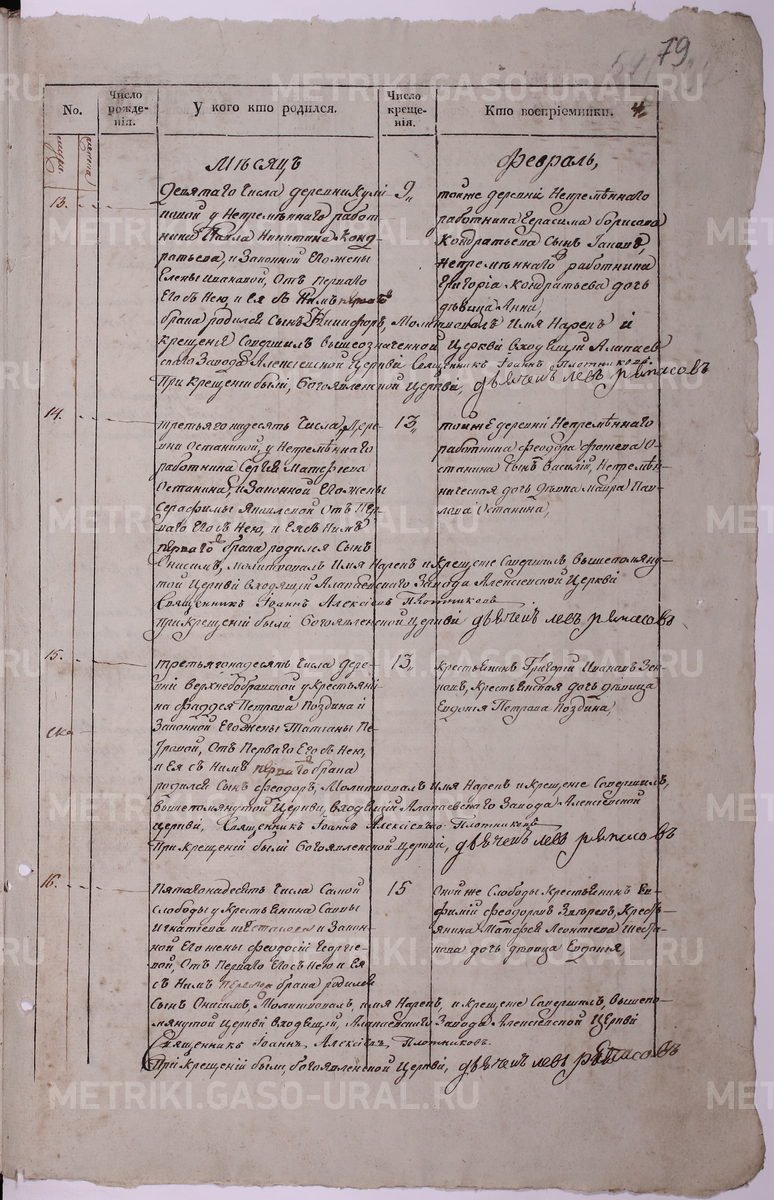 79
No.
Число рожденія.
У кого кто родился.
Число крещенія.
Кто воспріемники.
4
Мѣсяцъ
Февраль,
13.
Девятаго Числа деревни
у Непремѣннаго работ
ника Павла Никитина Конд
ратьева, и Законной Его жены
Елены Ивановой, Отъ Перваго
Его съ Нею, и Ея съ Нимъ перваго
брака родился Сынъ Никифоръ, Молитвовалъ Имя Нарекъ И
крещеніе Совершилъ вышеозначенной Церкви Входящій Алапаев
скаго Завода Алексіевской Церкви Священникъ Іоаннъ Плотниковъ.
При Крещеніи были, Богоявленской Церкви, дьячекъ Левъ Ряпасовъ
9,,
тойже деревни Непремѣннаго
работника Герасима Борисова
Кондратьева Сынъ
Непремѣннаго работника
Григорія Кондратьева дочь
дѣвица Анна,
14.
третьягонадесять Числа, Дере
вни Останиной, у Непремѣннаго
работника Сергія Матфеева
Останина, и Законной Его жены
Серафимы Отъ Пер
ваго Его съ Нею, и Ея съ Нимъ
перваго брака родился Сынъ
Онисимъ, Молитвовалъ Имя Нарекъ и Крещеніе Совершилъ вышепомяну
той Церкви Входящій Алапаевскаго Завода Алексіевской Церкви
Священникъ Іоаннъ Алексіевъ Плотниковъ
При крещеніи были Богоявленской Церкви дьячекъ Левъ Ряпасовъ
13,,
тойже деревни Непремѣннаго
работника Феодора Фотеева О
станина Сынъ Василій, Непремѣн
ническая дочь дѣвка Мавра Пав
лова Останина,
15.
третьягонадесять Числа дере
вни Верхнебобровской у Крестьяни
на Фаддея Петрова Поздина и
Законной Его жены Татіаны Пе
тровой, Отъ Перваго Его съ Нею,
и Ея съ Нимъ перваго брака
родился Сынъ Феодоръ, Молитвовалъ Имя Нарекъ и Крещеніе Совершилъ,
вышепомянутой Церкви, входящій Алапаевскаго Завода Алексіевской
Церкви, Священникъ Іоаннъ Алексіевъ Плотниковъ
При Крещеніи были Богоявленской Церкви, дьячекъ Левъ Ряпасовъ
13,,
крестьянинъ Григорій Ивановъ Зен
ковъ, Крестьянская дочь дѣвица
Евдокія Петрова Поздина,
16.
Пятагонадесять Числа Самой
Слободы у Крестьянина Саввы
Игнатіева и Закон
ной Его жены Феодосіи Георгіе
вой, Отъ Перваго Его съ Нею и Ея
съ Нимъ перваго брака родился
Сынъ Онисимъ, Молитвовалъ, имя Нарекъ, и крещеніе Совершилъ, вышепо
мянутой Церкви Входящій, Алапаевскаго Завода Алексіевской Церкви
Священникъ Іоаннъ, Алексіевъ, Плотниковъ.
При Крещеніи были, Богоявленской Церкви, дьячекъ Левъ Ряпасовъ
15
Оной же Слободы Крестьянинъ Ев
фимій Феодоровъ Крест
янина Матфея Леонтіева
дочь дѣвица Евдокія,
METRIKI.GASO-URAL.RU